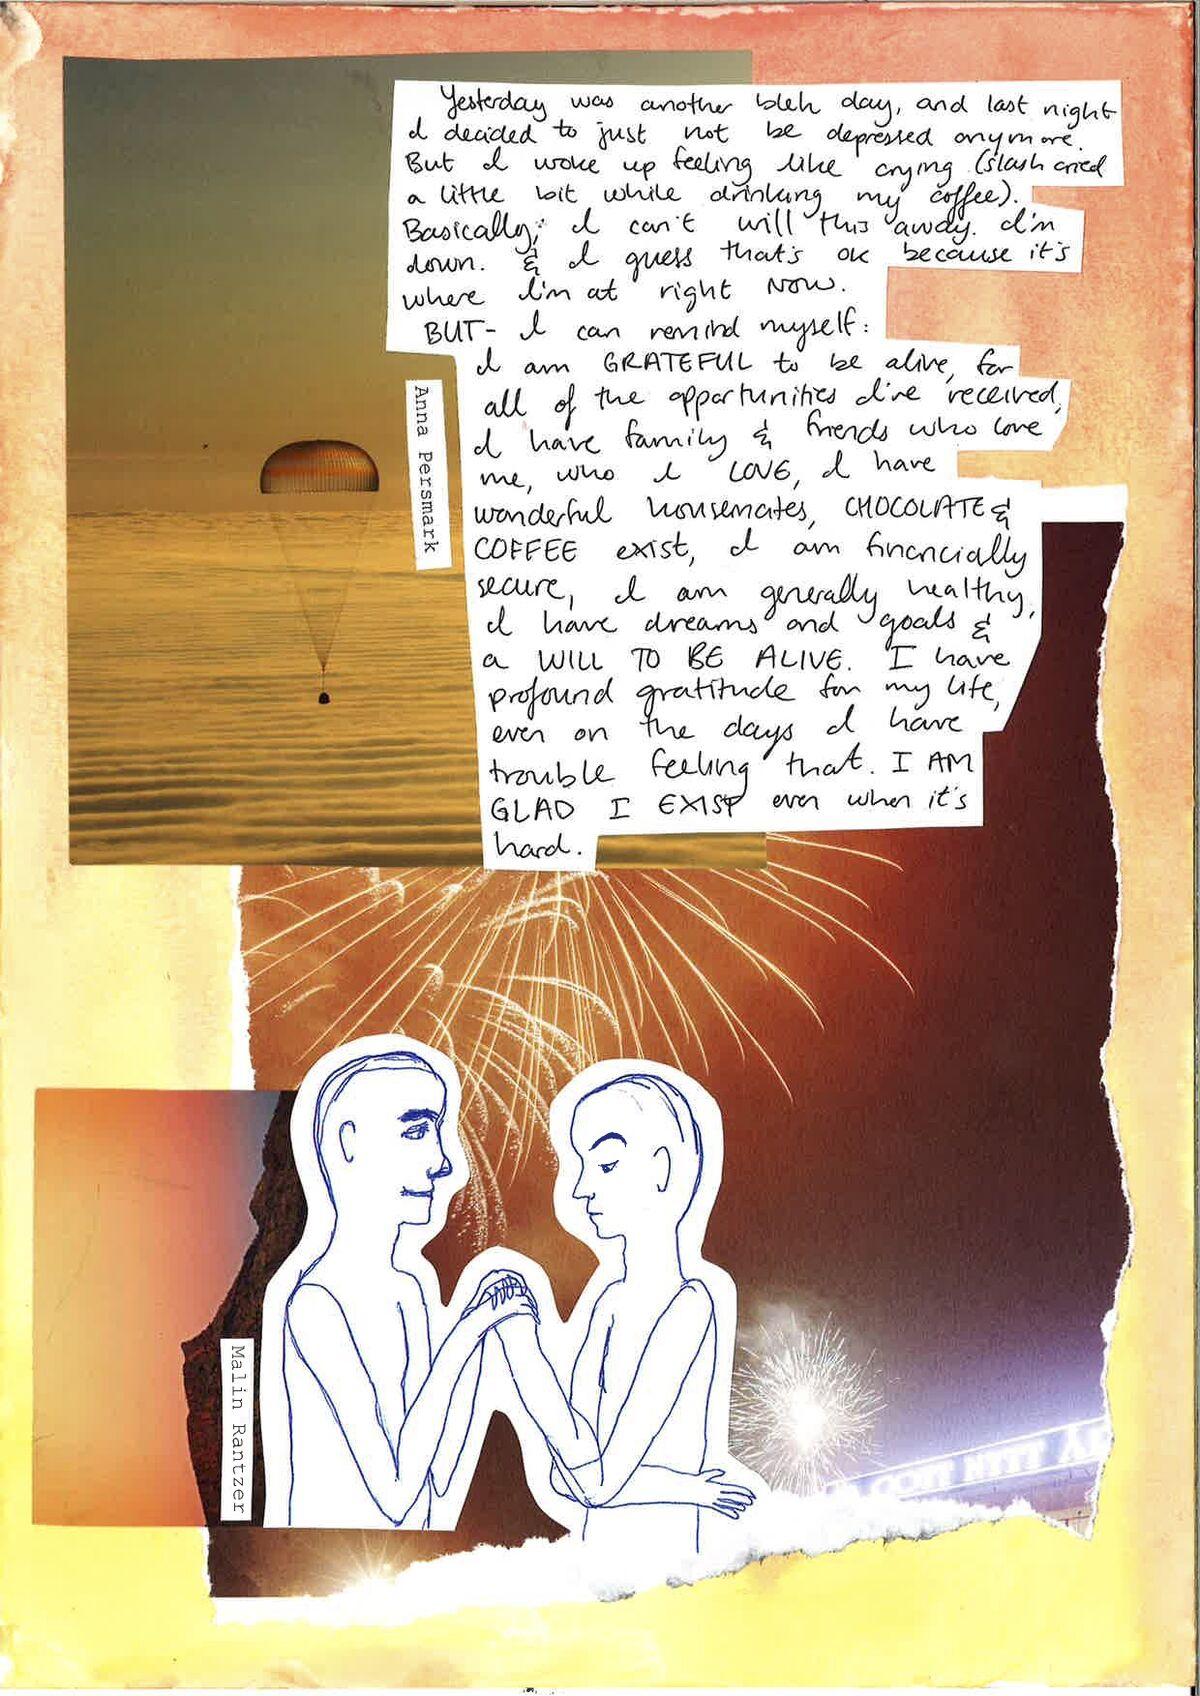 Yesterday was another bleh day, and last night
I decided to just not be depressed anymore.
But I woke up feeling like crying (slash cried
a little bit while drinking my coffee).
Basically; I can't will this away. I'm
down. & I guess that's ok because it's
where I'm at right NOW.
BUT- I can remind myself:
I am GRATEFUL to be alive, for
all of the opportunities I've received,
I have family & friends who love
me, who I LOVE, I have
wonderful housemates, CHOCOLATE &
COFFEE exist, I am financially
secure, I am generally healthy,
I have dreams and goals &
a WILL TO BE ALIVE. I have
profound gratitude for my life,
even on the days I have
trouble feeling that. I AM
GLAD I EXIST even when it's
hard.
Anna Persmark
Malin Rantzer